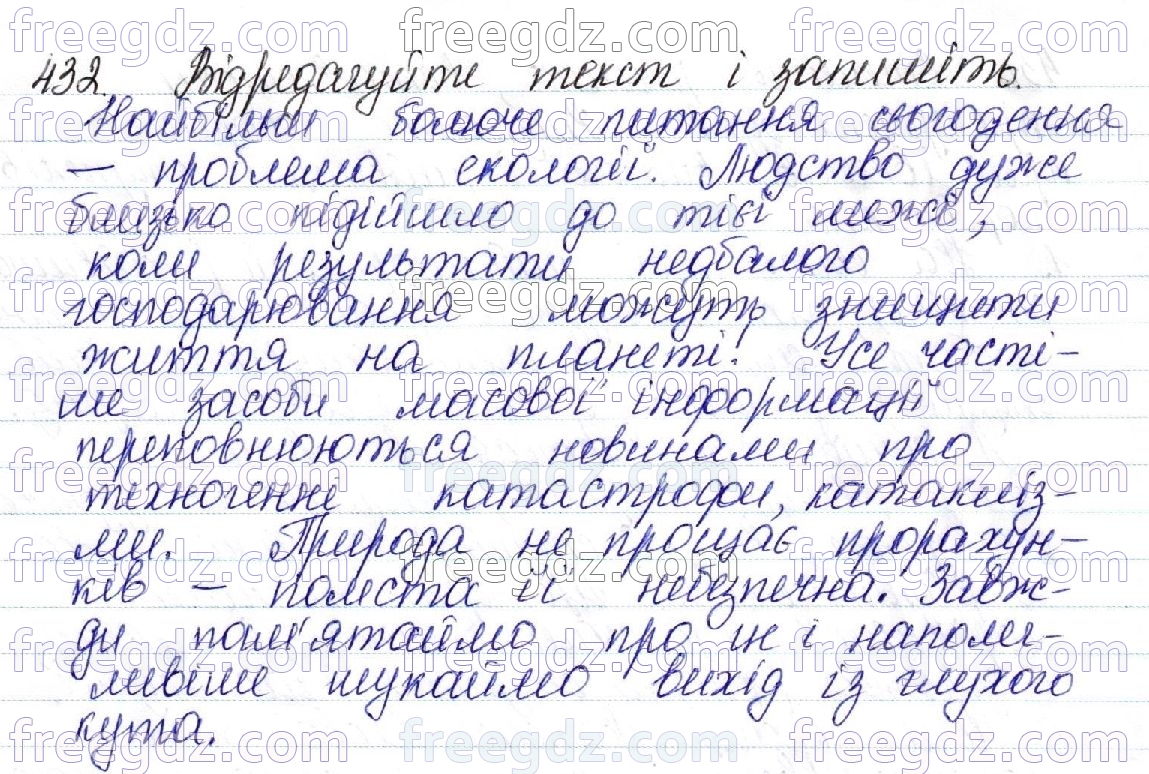 432 Відредагуйте текст і запишіть.
Найбільш болюче питання сьогодення
— проблема екології. Людство дуже
близько підійшло до тієї межі,
коли результати недбалого
господарювання можуть знищити
життя на планеті. Усе часті-
ше засоби масової інформації
переповнюються новинами про
техногенні катастрофи, катакліз-
ми. Природа не прощає прорахун-
ків – помста її небезпечна. Завж-
ди пам'ятаймо про це і наполег-
ливіше шукаймо вихід із глухого
кута.
freegdz.com